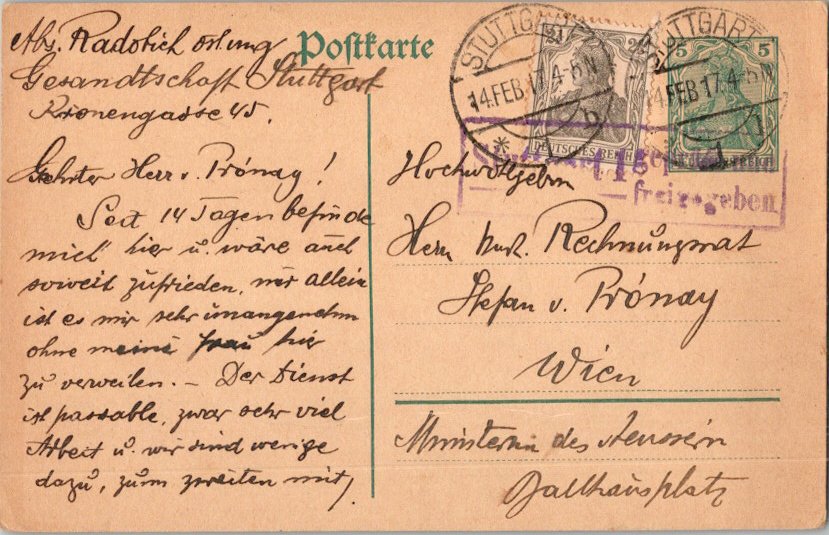 Abs. Radolich öst. ung.
Gesandtschaft Stuttgart
Kronengasse 45.
Postkarte
STUTTGART
14.FEB.17.4-5N
b
2½ 2½
DEUTSCHES REICH
STUTTGART
14.FEB.17.4-5N
5 5
REICH
freigegeben
Geehrter Herr v. Prónay!
Seit 14 Tagen befinde
mich hier u. wäre auch
soweit zufrieden, nur allein
ist es mir sehr unangenehm
ohne meine Frau hier
zu verweilen. – Der Dienst
ist passable, zwar sehr viel
Arbeit u. wir sind wenige
dazu, zum zweiten mit,
Hochwohlgeborn
Herrn Rechnungsrat
Stefan v. Prónay
Wien
Ministerium des Aeussern
Ballhausplatz